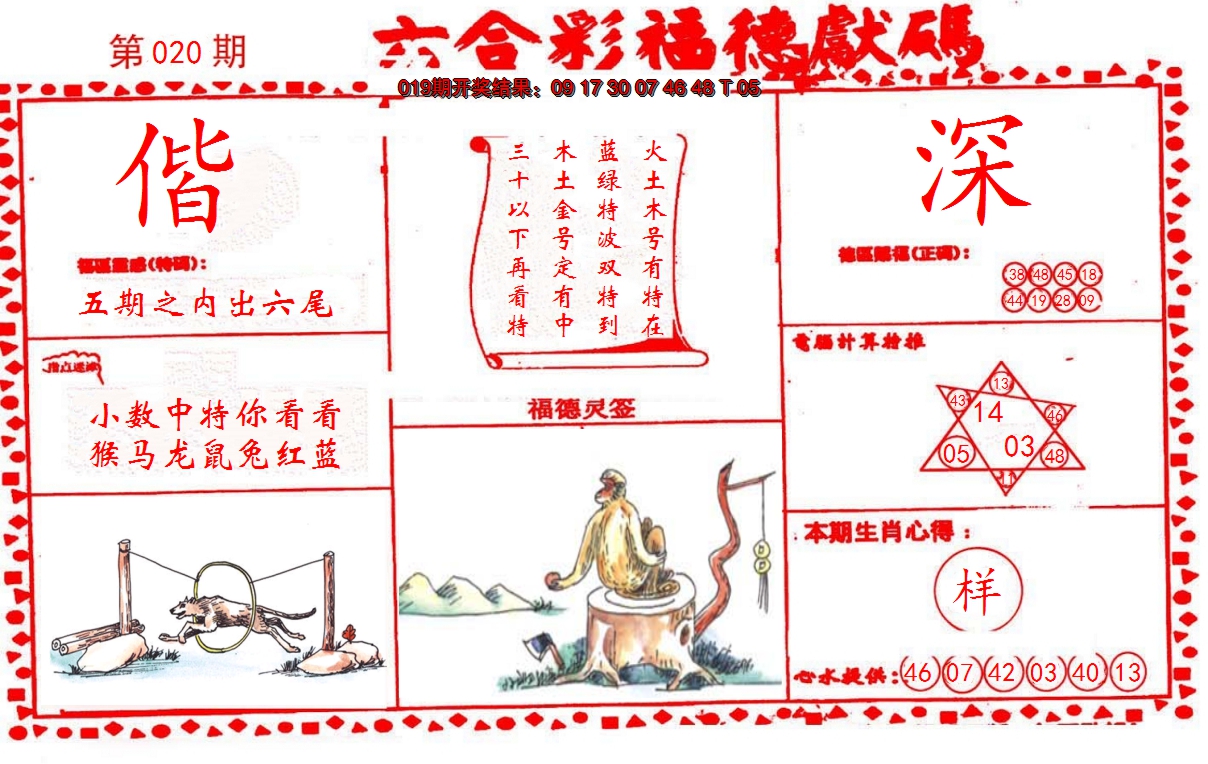 第020期
六合彩福德獻碼
019期开奖结果：09 17 30 07 46 48 T 05
偕
福區靈感(特碼)：
五期之内出六尾
火土木号有特在
蓝绿特波双特到
木土金号定有中
三十以下再看特
深
德區賜福(正碼)：
38 48 45 18
44 19 28 09
指点迷津
小数中特你看看
猴马龙鼠兔红蓝
福德灵签
電腦計算檢推
13
43 14 46
05 03 48
11
本期生肖心得：
样
心水提供：46 07 42 03 40 13